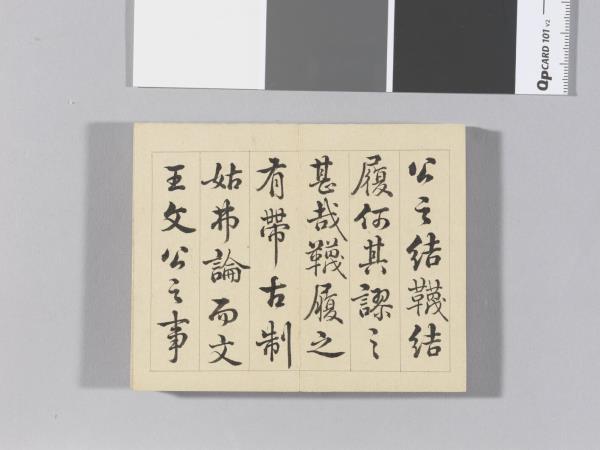 公之結韈結
履何其謬之
甚哉韈履之
有帶古制
姑弗論而文
王文公之事
QPCARD 101 v2